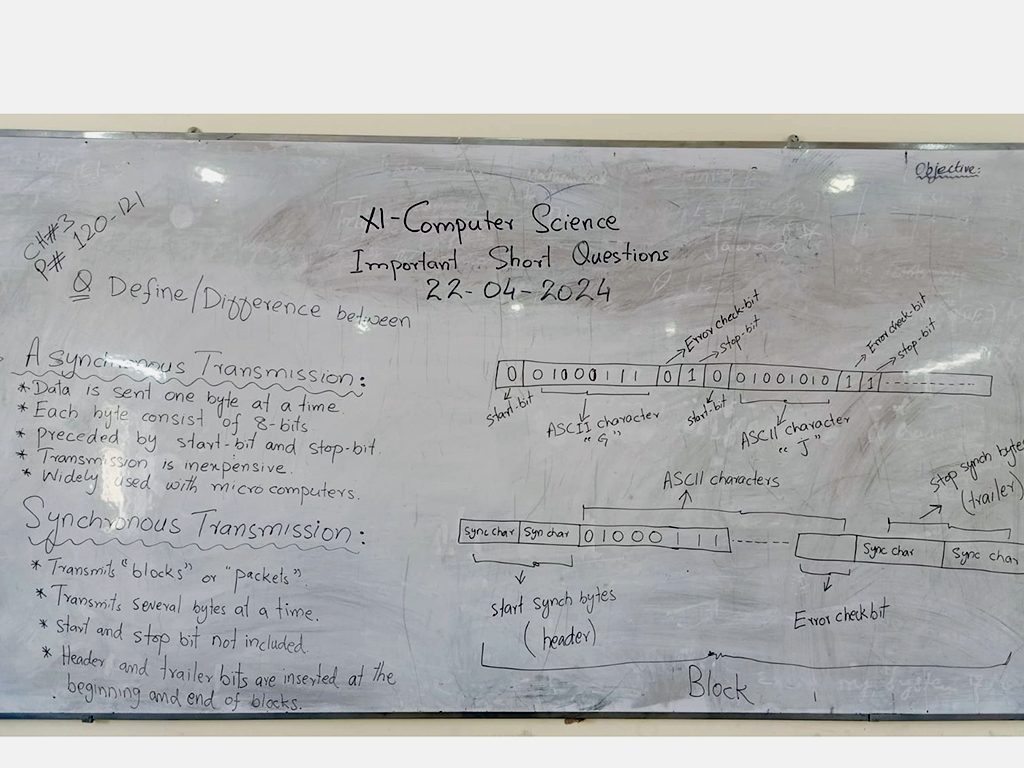 Objective:
CH#3
P# 120-121
XI-Computer Science
Important Short Questions
22-04-2024
Q Define/Difference between
Asynchronous Transmission:
* Data is sent one byte at a time.
* Each byte consist of 8-bits
* preceded by start-bit and stop-bit.
* Transmission is inexpensive.
* Widely used with micro computers.
Synchronous Transmission:
* Transmits "blocks" or "packets".
* Transmits several bytes at a time.
* Start and stop bit not included.
* Header and trailer bits are inserted at the
beginning and end of blocks.
Error check-bit
stop-bit
Error check-bit
stop-bit
0 01000111 0 1 0 01001010 1 1
start-bit
ASCII character
"G"
start-bit
ASCII character
"J"
ASCII characters
Stop synch bytes
(trailer)
Sync char Syn char 01000111 Sync char Sync char
start synch bytes
(header)
Error checkbit
Block